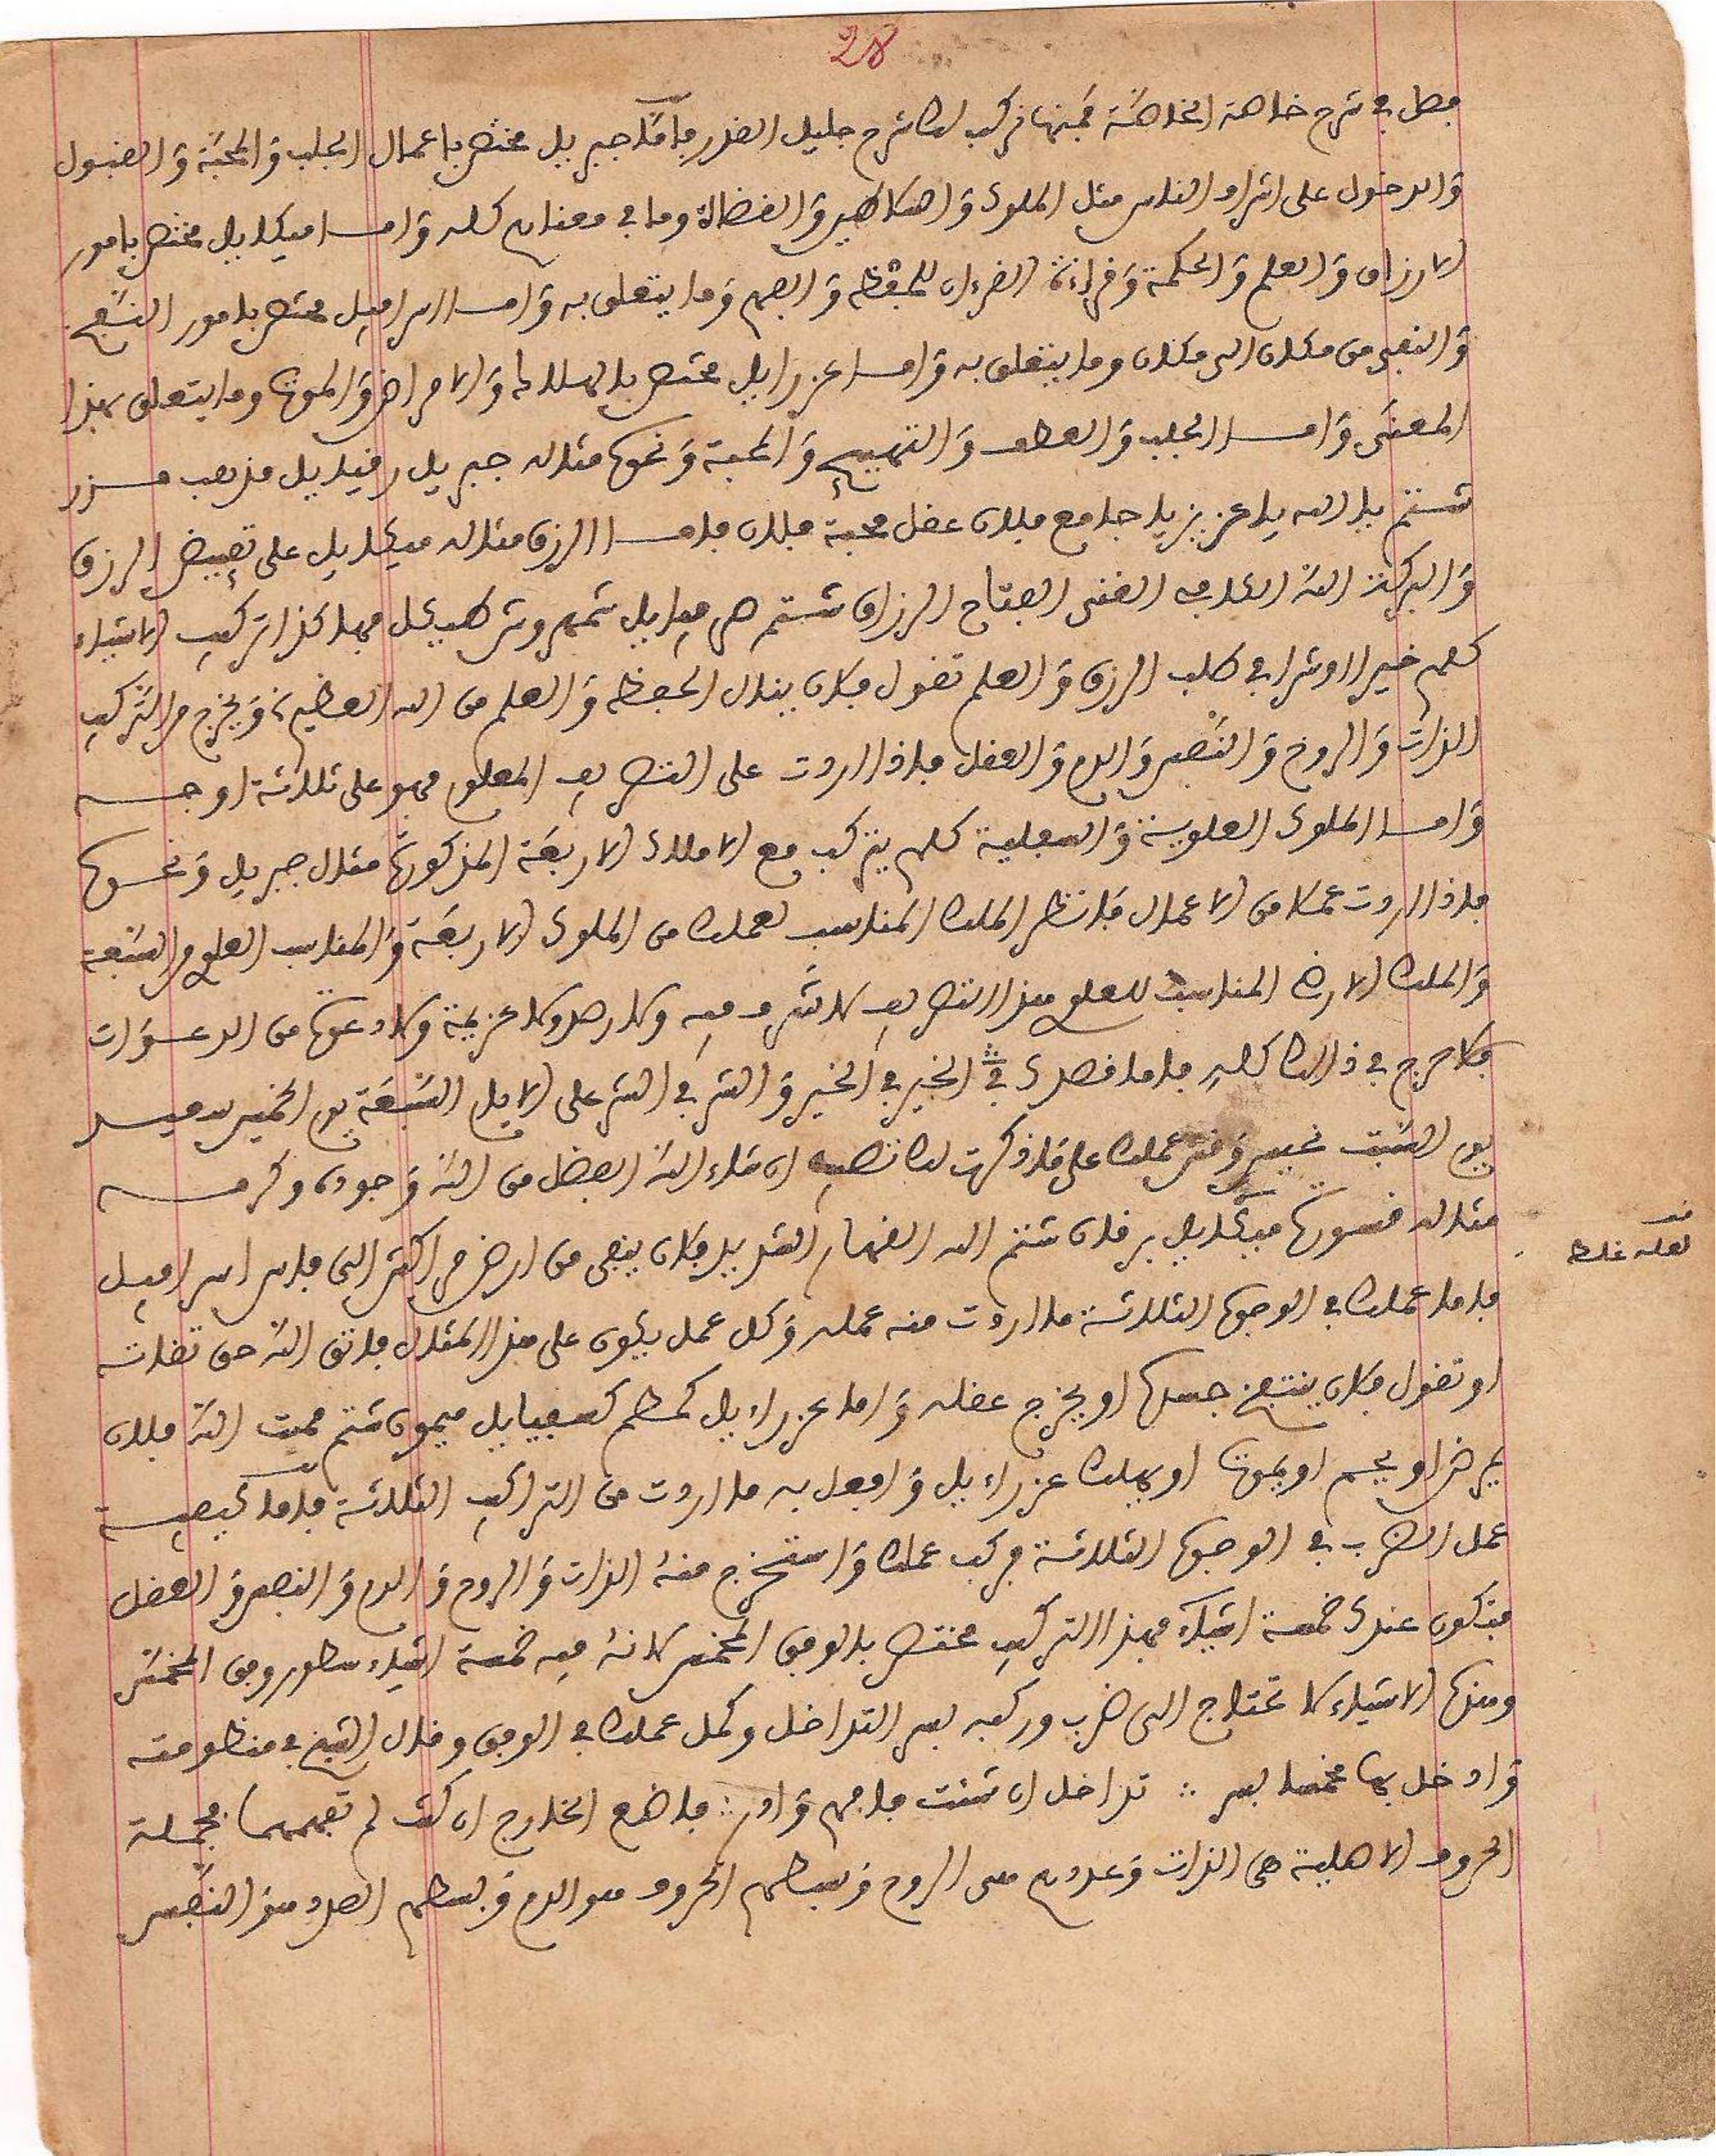 28
فصل في شرح خاصة الخاصة فمنها نركب لك شرح جليل القدر فأما جبريل مختص باعمال الجلب والمحبة والقبول
والدخول على اشراف الناس مثل الملوك والسلاطين والقضاة وما في معناهم كله واما ميكاييل مختص بامور
الارزاق والعلم والحكمة وقراءة القرءان للحفظ والفهم وما يتعلق به واما اسرافيل مختص بامور النفخ
والنفي من مكان الى مكان وما يتعلق به واما عزرايل مختص بالهلاك والامراض والموت وما يتعلق بهذا
المعنى واما الجلب والعطف والتهييج والمحبة ونحوها مثاله جبريل رقياييل مذهب
شتم يا الله يا عزيز يا جامع فلان عقل محبة فلان فاما الرزق مثاله ميكاييل على تفييض الرزق
والبركة الله الكافي الغني الفتاح الرزاق شتم شمهروش بكل فهاكذا تركيب الاشياء
كلهم خيرا او شرا في طلب الرزق والعلم تقول فلان ينال الحفظ والعلم من الله العظيم، ويخرج من التركيب
الذات والروح والنفس والدم والعقل فاذا اردت على التصريف المعلوم فهو على ثلاثة اوجه
واما الملوك العلوية والسفلية كلهم يتركب مع الاملاك الاربعة المذكورة مثال جبريل ونحوها
فاذا اردت عملا من الاعمال فانظر الملك المناسب لعملك من الملوك الاربعة والمناسب العلو من السبعة
والملك الارض المناسب للعلو هذا التصريف لا شرف فيه ولا رصد ولا عزيمة ولا دعوة من الدعوات
فلا حرج في ذالك كله فاما قصدك في الخير في الخير والشر في الشر على الايام السبعة يوم الخميس سعيد
يوم السبت نحيس وقس عملك على ما ذكرت لك تصب ان شاء الله الفضل من الله وجوده وكرمه
مثاله قسورة ميكاييل برقان شتم الله القهار الشديد فلان ينفى من ارض الى فاس اسرافيل
فاما عملك في الوجوه الثلاثة ما اردت منه عمله وكل عمل يكون على هذا المثال فاتق الله حق تقاته
او تقول فلان ينتفخ جسده او يخرج عقله واما عزراءيل كمطم كسفياييل ميمون شتم مميت الله فلان
يمرض او يحم او يموت او يهلك عزراءيل وافعل به ما اردت من التراكيب الثلاثة فاما كيفية
عمل الضرب في الوجوه الثلاثة فركب عملك واستخرج منه الذات والروح والدم والنفس والعقل
فتكون عندك خمسة اشياء فهذا التركيب مختص بالوفق المخمس لانه فيه خمسة اشياء سطور وفق المخمس
وهذه الاشياء لا تحتاج الى ضرب وركبه بسر التداخل وكمل عملك في الوفق وقال الشيخ في منظومته
وادخل بها مخمسا بسر ∴ تداخل ان شئت فافهم وادر ∴ فاضع الخارج ان كنت لم تفهمها فجملة
الحروف الاصلية هي الذات وعددهم هي الروح وبسطهم الحروف هو الدم وبسطهم العدد هو النفس
لعله غلط